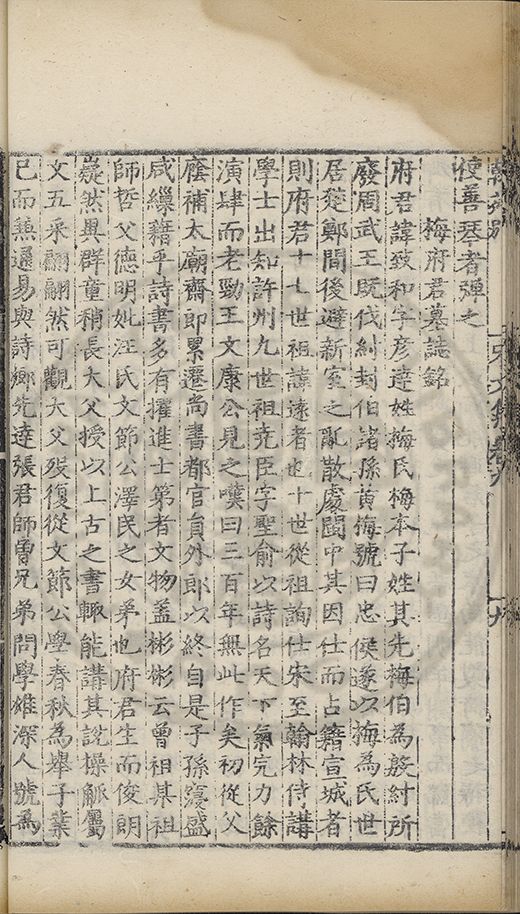 使善琴者彈之
梅府君墓誌銘
府君諱致和字彥達姓梅氏梅本子姓其先梅伯為殷紂所
廢周武王既伐紂封伯諸孫黃梅號曰忠侯遂以梅為氏世
居楚鄭間後避新室之亂散處閩中其因仕而占籍宣城者
則府君十七世祖諱遠者也十世從祖詢仕宋至翰林侍講
學士出知許州九世祖堯臣字聖俞以詩名天下氣完力餘
演肆而老勁王文康公見之嘆曰三百年無此作矣初從父
廕補太廟齋郎累遷尚書都官員外郎以終自是子孫寖盛
咸繅藉乎詩書多有擢進士第者文物蓋彬彬云曾祖某祖
師哲父德明妣汪氏文節公澤民之女弟也府君生而俊朗
嶷然與群童稍長大父授以上古之書輒能講其說操觚屬
文五采翩翩然可觀大父歿復從文節公學春秋為舉子業
已而兼邃易與詩鄉先達張君師曾兄弟問學雄深人號為